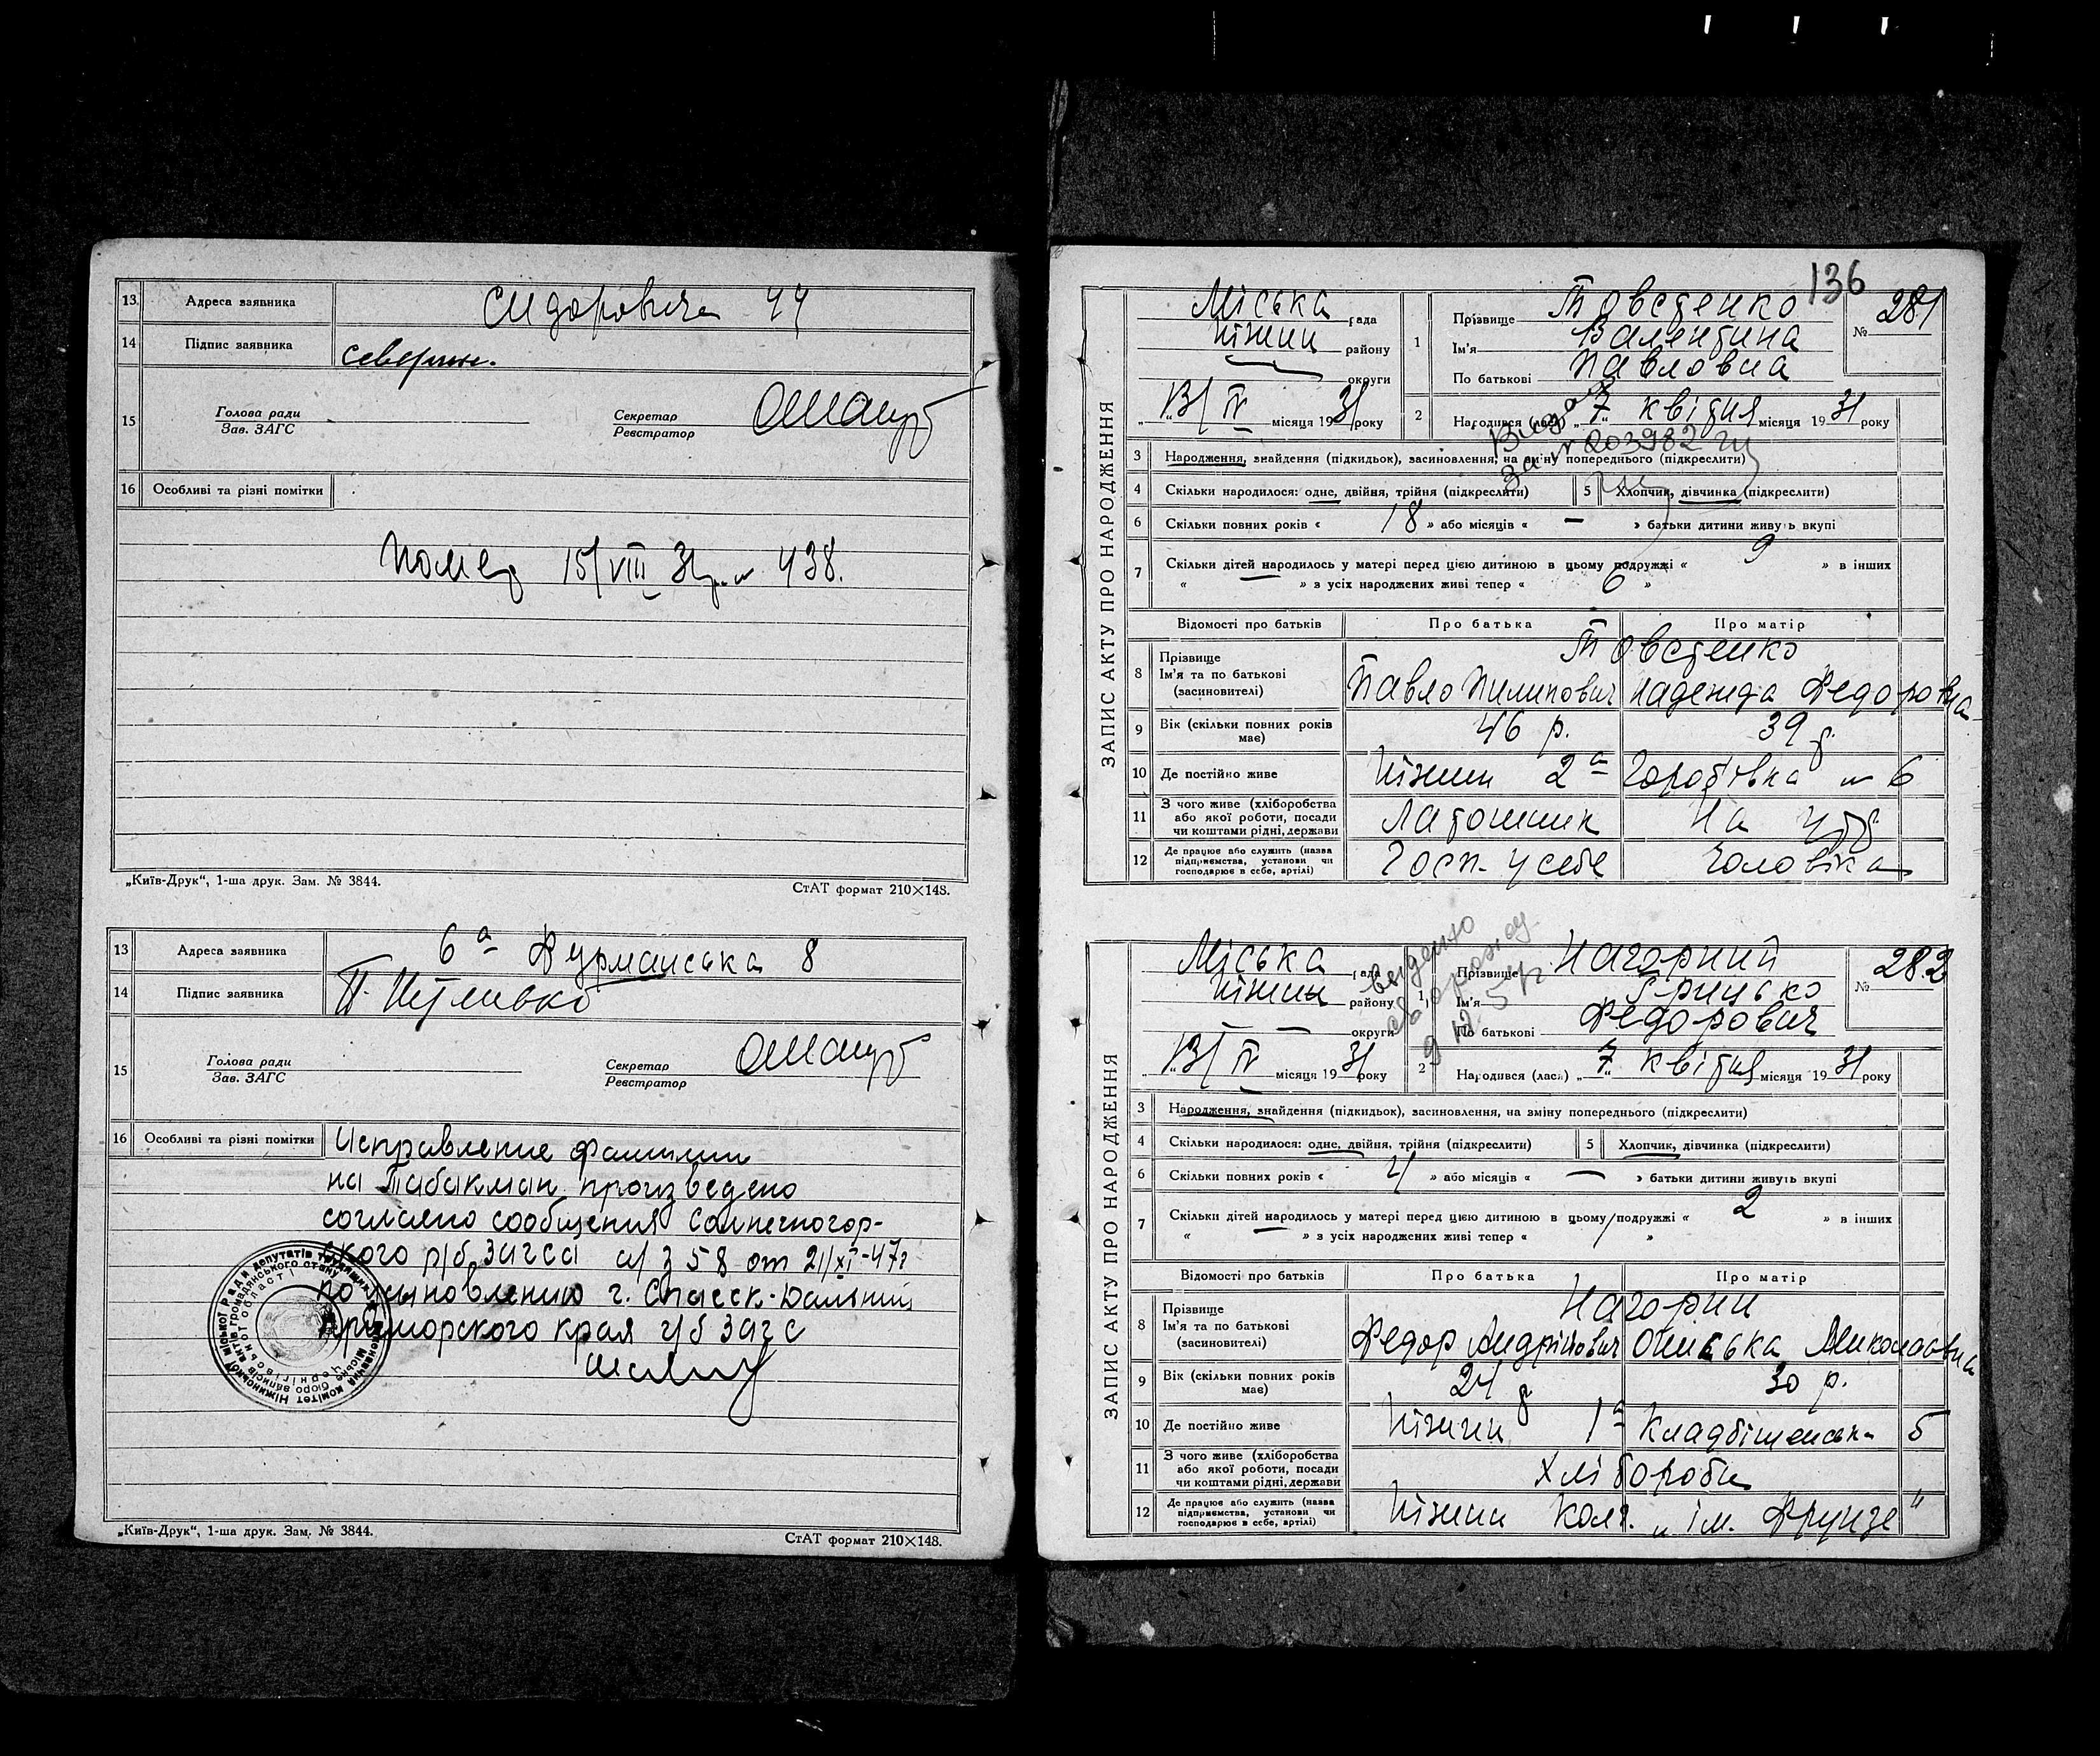 13 Адреса заявника Сидоровича 44
14 Підпис заявника
15 Голова ради Зав. ЗАГС Секретар Реєстратор
16 Особливі та різні помітки
Помер 15/VIII 31р. № 438.
„Київ-Друк“, 1-ша друк. Зам. № 3844. СтАТ формат 210×148.
13 Адреса заявника 6а Фурманська 8
14 Підпис заявника
15 Голова ради Зав. ЗАГС Секретар Реєстратор
16 Особливі та різні помітки Исправление фамилии
на Табакман произведено
согласно сообщения Солнечногор-
ского р/б загса а/з 58 от 21/XI-47г
по г. Спасск-Дальний
Приморского края г/б загс
„Київ-Друк“, 1-ша друк. Зам. № 3844. СтАТ формат 210×148.
136
ЗАПИС АКТУ ПРО НАРОДЖЕННЯ
Міська рада
Ніжин району
округи
„13/IV місяця 1931 року
1 Прізвище Товстенко № 281
Ім'я Валентина
По батькові Павловна
2 Народився (лась) „7“ квітня місяця 1931 року
Видан
203982
3 Народження, знайдення (підкидьок), засиновлення, на зміну попереднього (підкреслити)
4 Скільки народилося: одне, двійня, трійня (підкреслити) 5 Хлопчик, дівчинка (підкреслити)
6 Скільки повних років « 18 » або місяців « — » батьки дитини живуть вкупі
7 Скільки дітей народилось у матері перед цією дитиною в цьому подружжі « 9 » в інших
« » з усіх народжених живі тепер « 6 »
Відомості про батьків Про батька Про матір
8 Прізвище Ім'я та по батькові (засиновителі) Товстенко
Павло Пилипович Надежда Федоровна
9 Вік (скільки повних років має) 46 р. 39 р.
10 Де постійно живе Ніжин 2а Горобівка № 6
11 З чого живе (хліборобства або якої роботи, посади чи коштами рідні, держави На утр
12 Де працює або служить (назва підприємства, установи чи господарює в себе, артілі) Госп. у себе чоловіка
ЗАПИС АКТУ ПРО НАРОДЖЕННЯ
Міська рада
Ніжин району
округи
„13/IV місяця 1931 року
1 Прізвище Нагорний № 282
Ім'я Грицько
По батькові Федорович
2 Народився (лась) „7“ квітня місяця 1931 року
3 Народження, знайдення (підкидьок), засиновлення, на зміну попереднього (підкреслити)
4 Скільки народилося: одне, двійня, трійня (підкреслити) 5 Хлопчик, дівчинка (підкреслити)
6 Скільки повних років « 4 » або місяців « — » батьки дитини живуть вкупі
7 Скільки дітей народилось у матері перед цією дитиною в цьому подружжі « 2 » в інших
« » з усіх народжених живі тепер « »
Відомості про батьків Про батька Про матір
8 Прізвище Ім'я та по батькові (засиновителі) Нагорни
Федор Андрійович Ониська Миколаовна
9 Вік (скільки повних років має) 24 р 30 р.
10 Де постійно живе Ніжин 1а Кладбіщенськ 5
11 З чого живе (хліборобства або якої роботи, посади чи коштами рідні, держави Хлібороби
12 Де працює або служить (назва підприємства, установи чи господарює в себе, артілі) Ніжин Колг. „ім. Фрунзе“